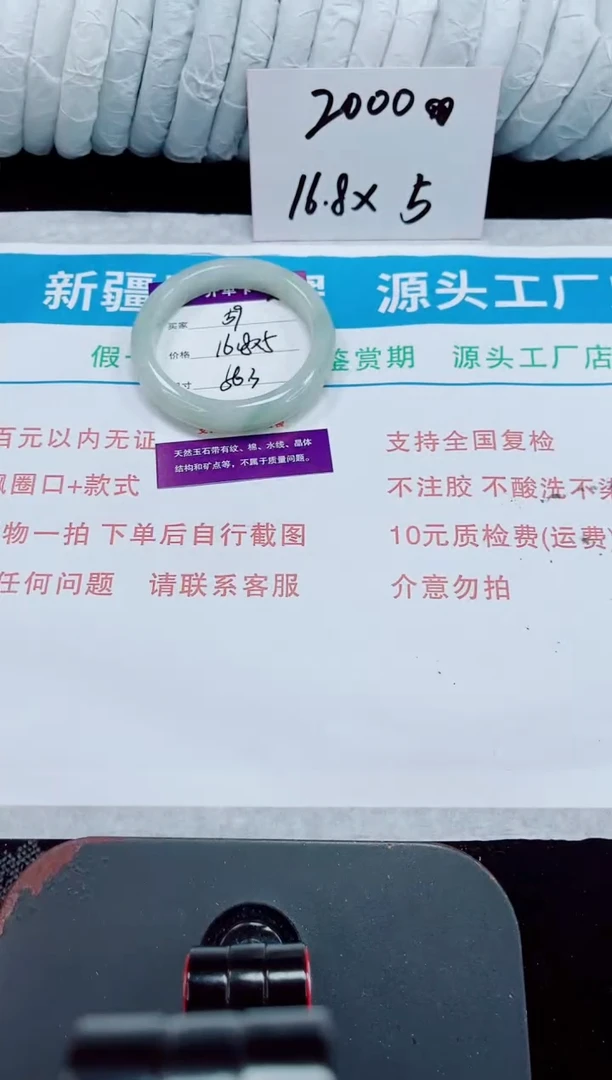 2000
16.8× 5
新疆 源头工厂
买家
价格 16.8×5
寸 66.3
假一 鉴赏期 源头工厂店
天然玉石带有纹、棉、水线、晶体
结构和矿点等，不属于质量问题。
百元以内无证 支持全国复检
圈口+款式 不注胶 不酸洗不染
物一拍 下单后自行截图 10元质检费(运费
任何问题 请联系客服 介意勿拍